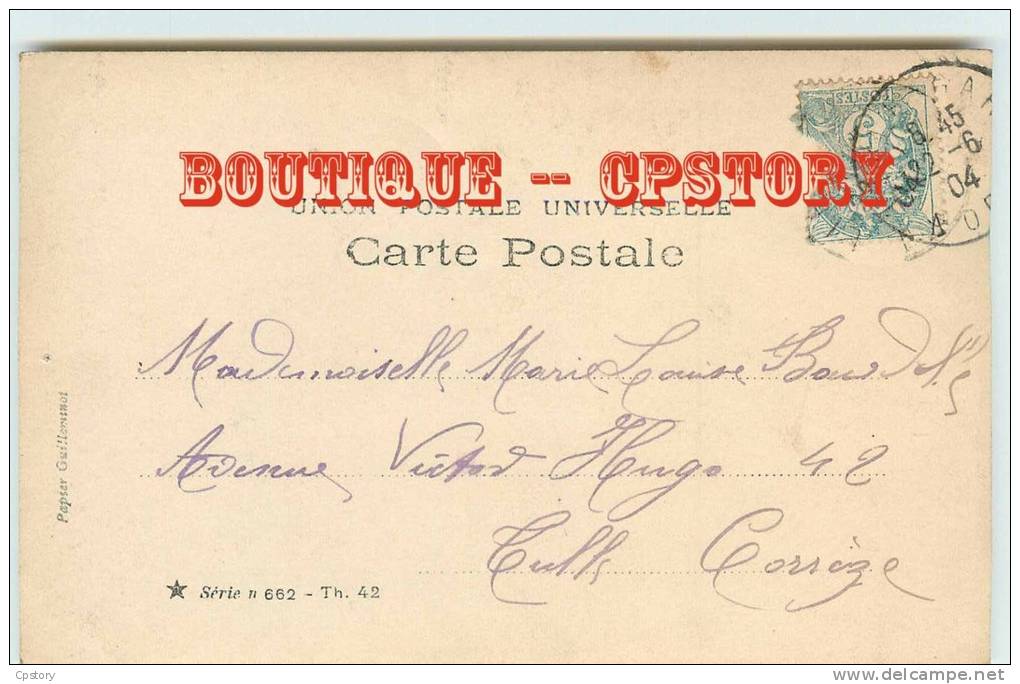 BOUTIQUE -- CPSTORY
UNION POSTALE UNIVERSELLE
Carte Postale
POSTES
8 45
22 -6
04
Mademoiselle Marie Louise
Avenue Victor Hugo 42
Tulle Corrèze
Papier Guilleminot
★ Série n 662 - Th. 42
Cpstory
www.delcampe.net